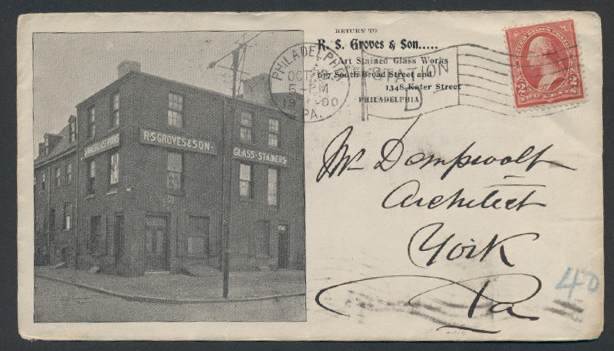 RETURN TO
R. S. Groves & Son.....
Art Stained Glass Works
627 South Broad Street and
1348 Kater Street
PHILADELPHIA
PHILADELPHIA
OCT
5-PM
1900
PA.
STATION
D
2 2
TWO CENTS
R.S.GROVES&SON-
GLASS-STAINERS
Mr Dempwolf
Architect
York
Pa
40